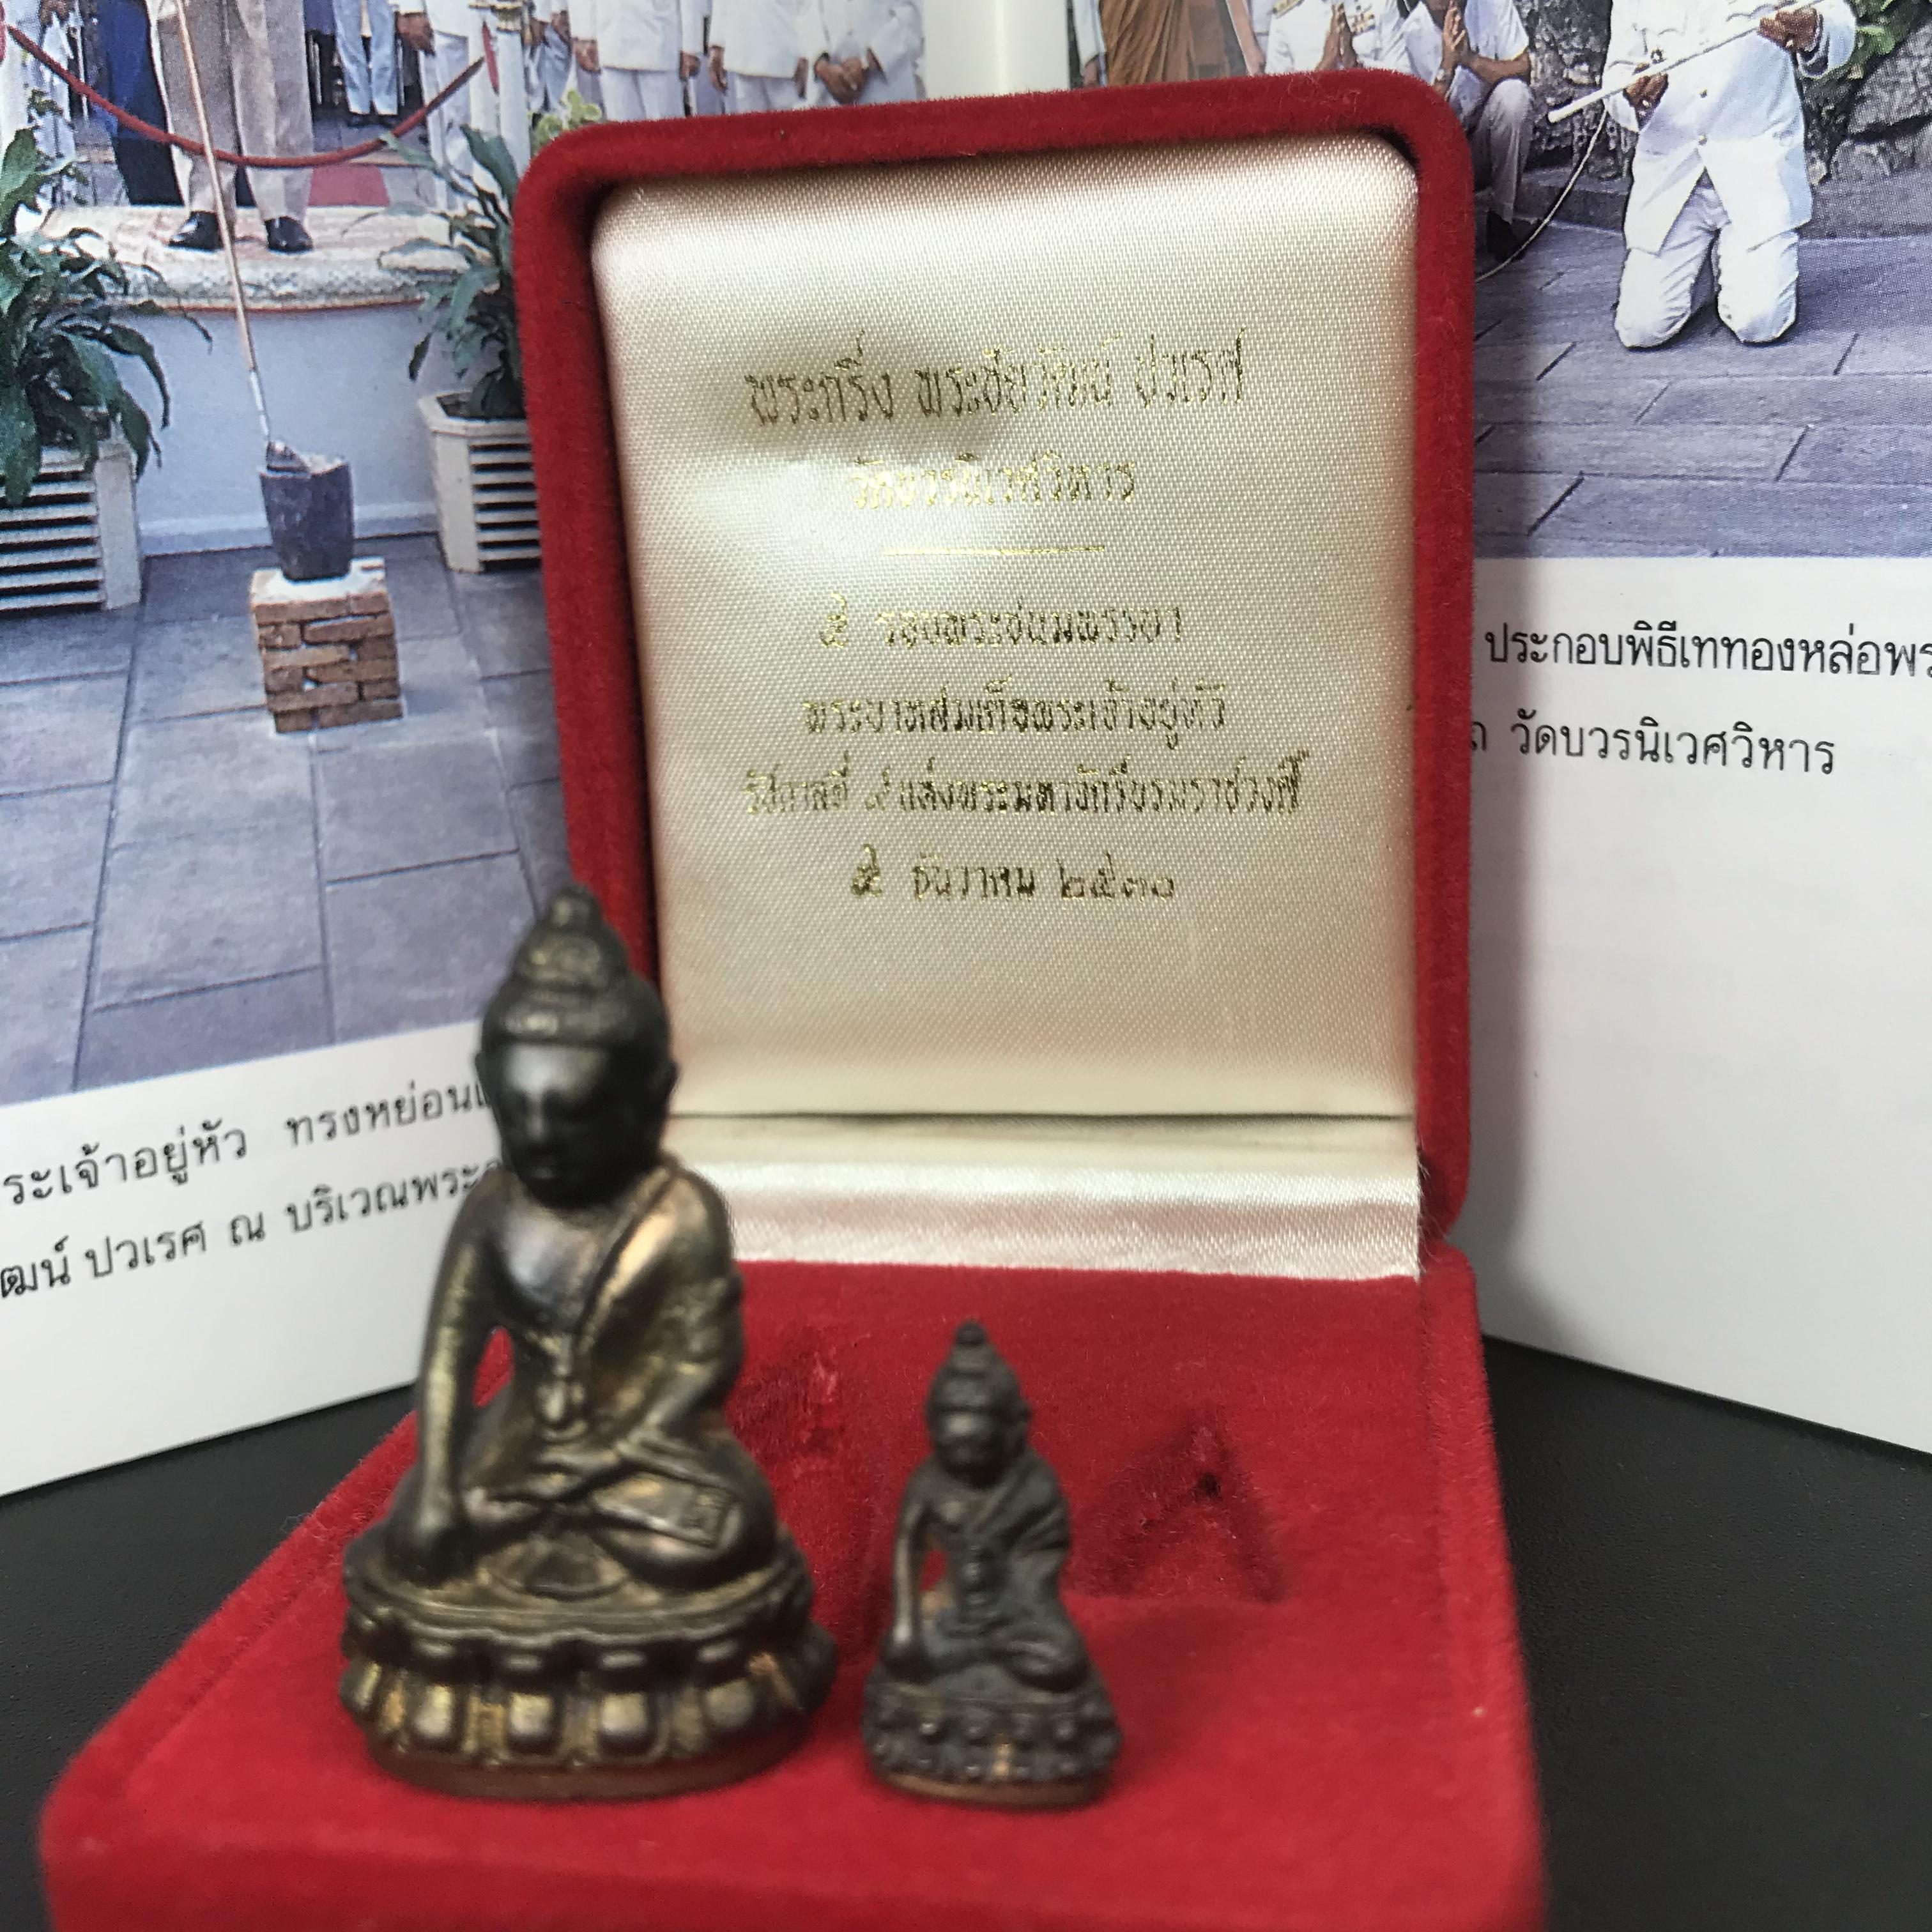 พระกริ่ง พระชัยวัฒน์ ปวเรศ
วัดบวรนิเวศวิหาร
๕ รอบพระชนมพรรษา
พระบาทสมเด็จพระเจ้าอยู่หัว
รัชกาลที่ ๙ แห่งพระมหาจักรีบรมราชวงศ์
๕ ธันวาคม ๒๕๓๐
ระเจ้าอยู่หัว ทรงหย่อน
ฒน์ ปวเรศ ณ บริเวณพระ
ประกอบพิธีเททองหล่อพร
ถ วัดบวรนิเวศวิหาร